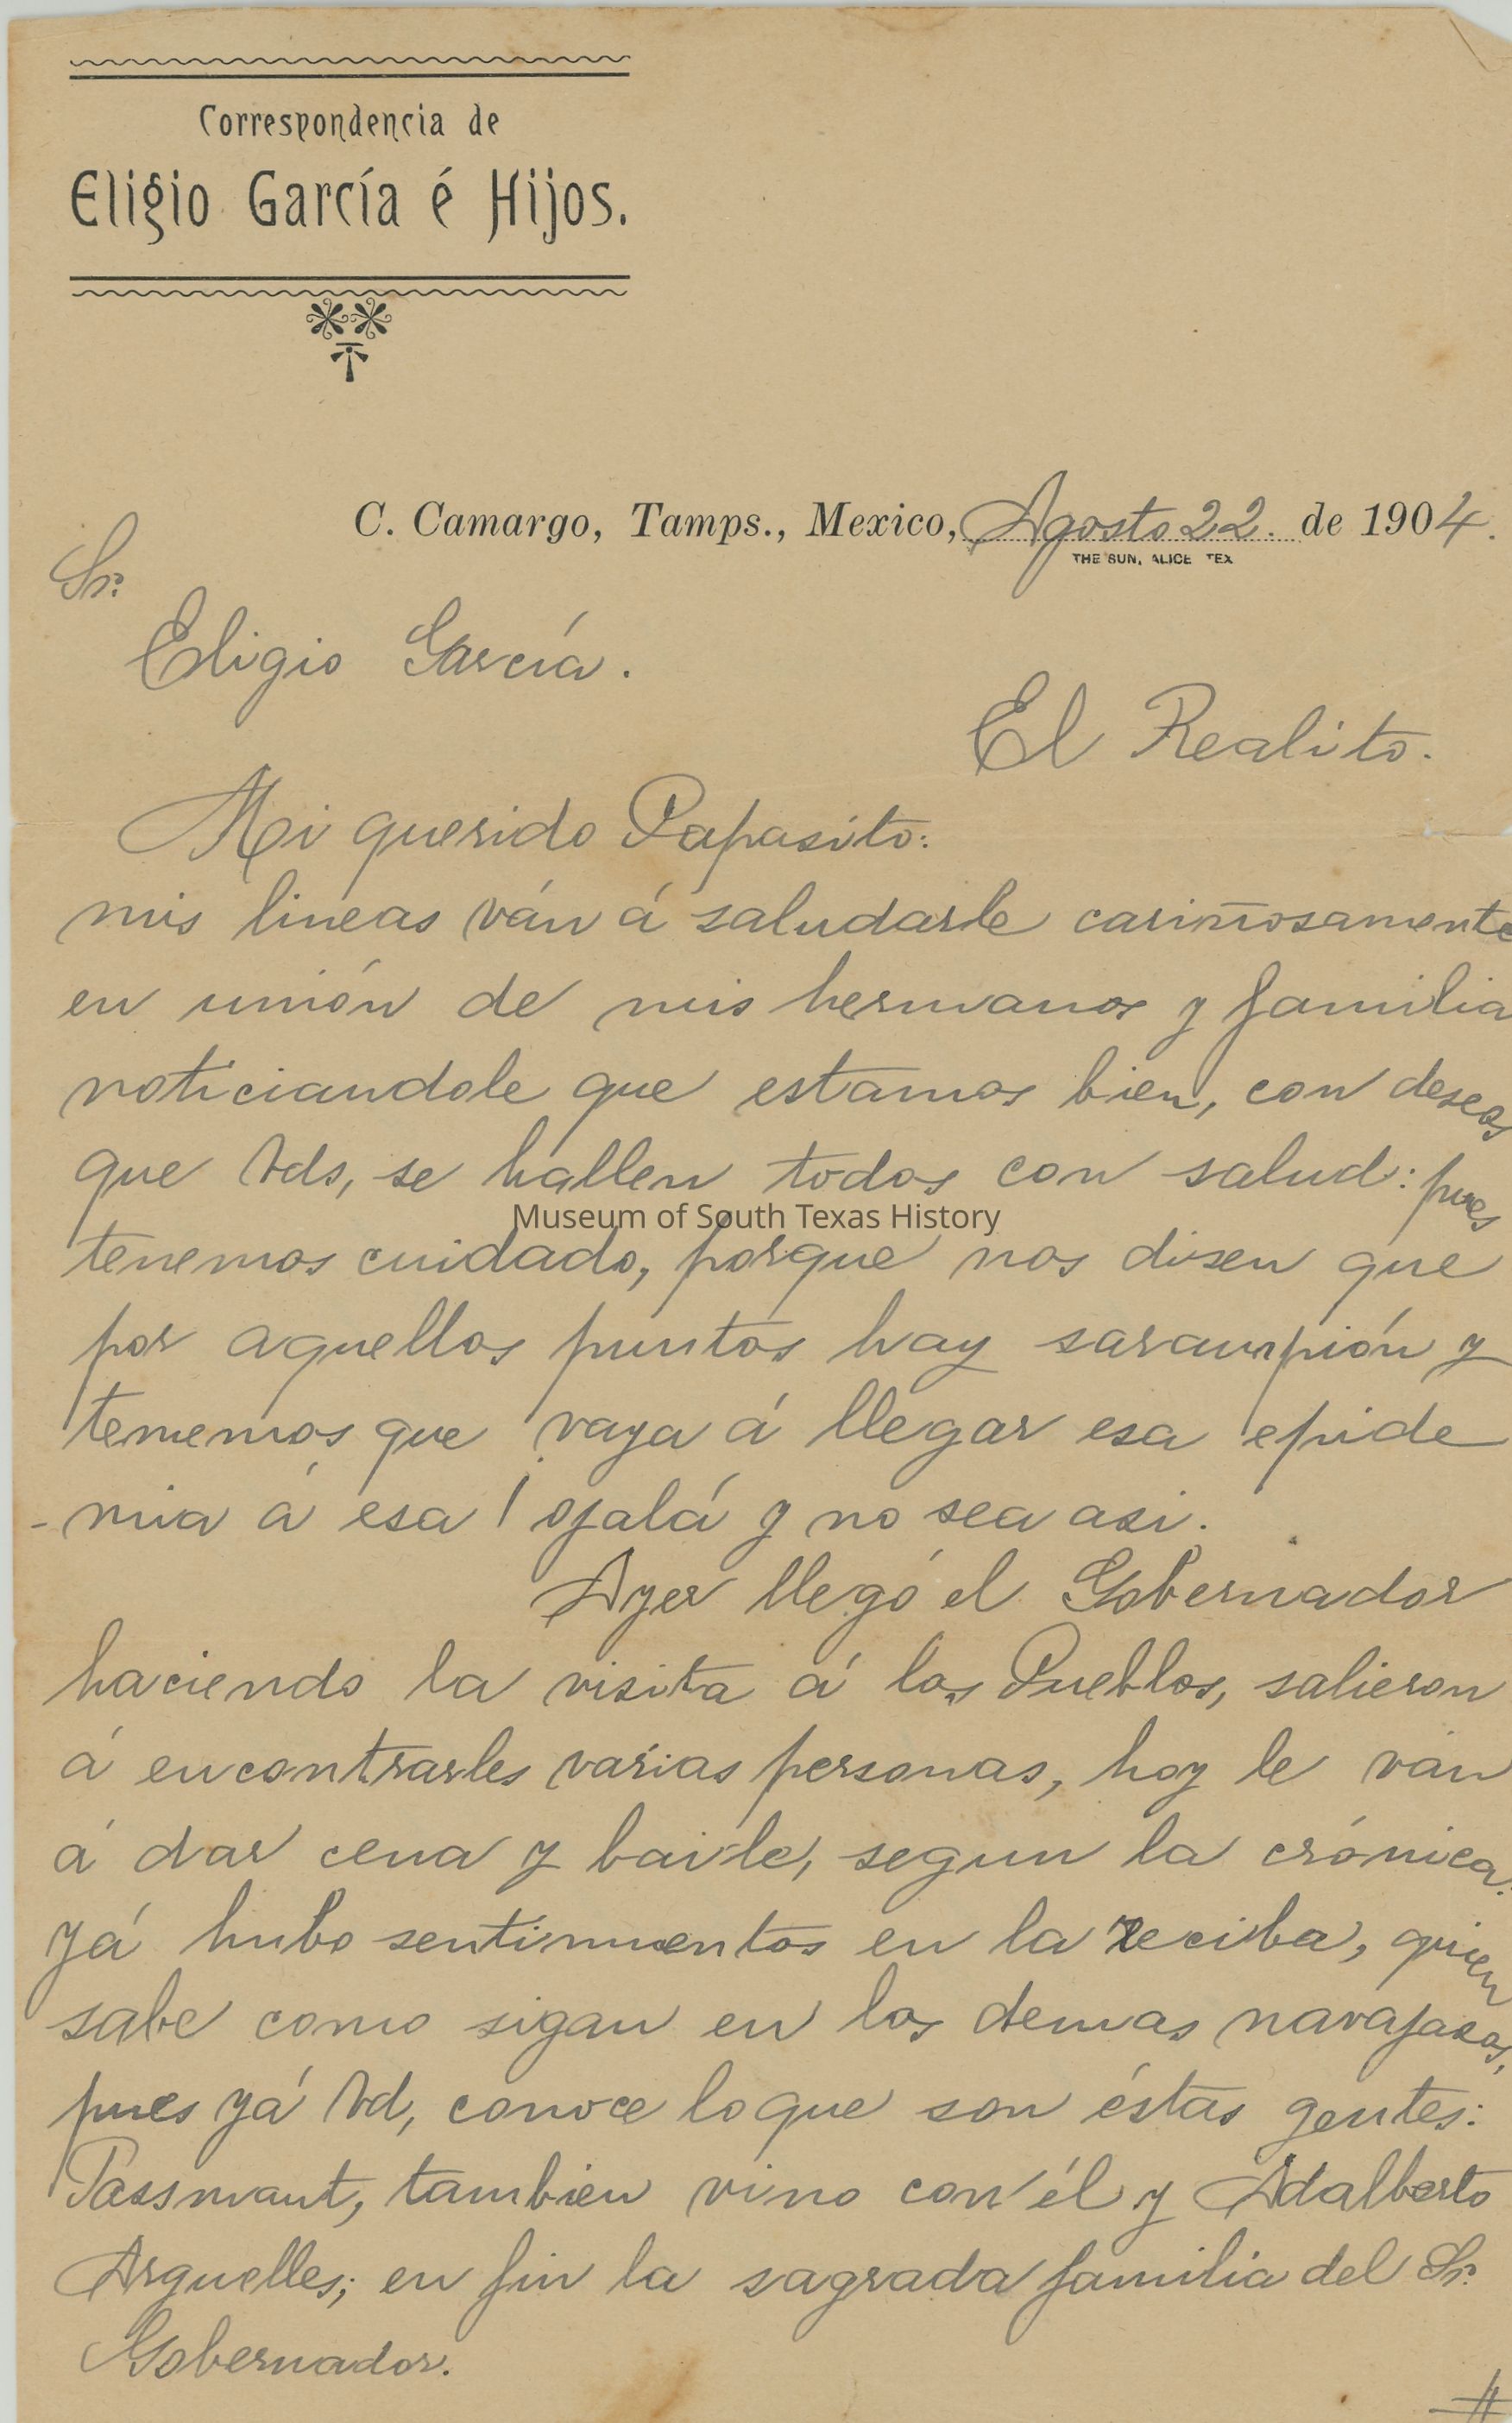 Correspondencia de
Eligio García é Hijos.
C. Camargo, Tamps., Mexico, Agosto 22. de 1904.
THE SUN, ALICE TEX
Sr.
Eligio García.
El Realito.
Mi querido Papasito:
mis lineas ván á saludarle cariñosamente
en unión de mis hermanos y familia
noticiandole que estamos bien, con deseos
que Vds, se hallen todos con salud: pues
Museum of South Texas History
tenemos cuidado, porque nos disen que
por aquellos puntos hay sarampión y
tememos que vaya á llegar esa epide
-mia á esa ! ojalá y no sea asi.
Ayer llegó el Gobernador
haciendo la visita á los Pueblos, salieron
á encontrarles varias personas, hoy le ván
á dar cena y baile, segun la crónica.
yá hubo sentimientos en la reciba, quien
sabe como sigan en los demas navajasos,
pues yá Vd, conoce lo que son éstas gentes:
Passmant, tambien vino con él y Adalberto
Arguelles; en fin la sagrada familia del Sr.
Gobernador.
#